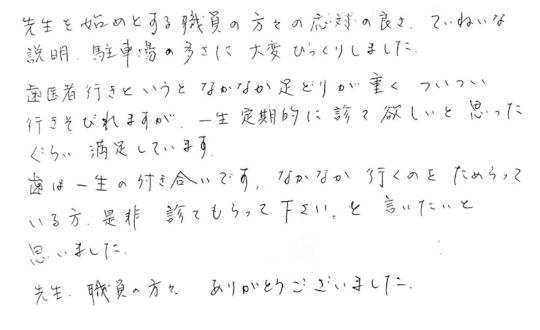 先生を始めとする職員の方々の応対の良さ、ていねいな
説明、駐車場の多さに大変びっくりしました。
歯医者行きというとなかなか足どりが重くついつい
行きそびれますが、一生定期的に診て欲しいと思った
ぐらい満足しています。
歯は一生の付き合いです。なかなか行くのをためらって
いる方、是非診てもらって下さい、と言いたいと
思いました。
先生、職員の方々ありがとうございました。